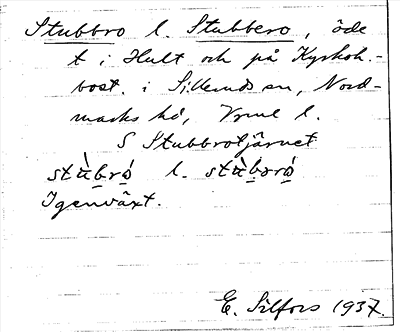 Stubbro l. Stubbero, öde
t i Hult och på Kyrkoh.-
bost. i Sillerud sn, Nord-
marks hd, Vrml l.
S Stubbrotjärnet
stùbró l. stùbəró
Igenväxt.
E. Silfors 1937.